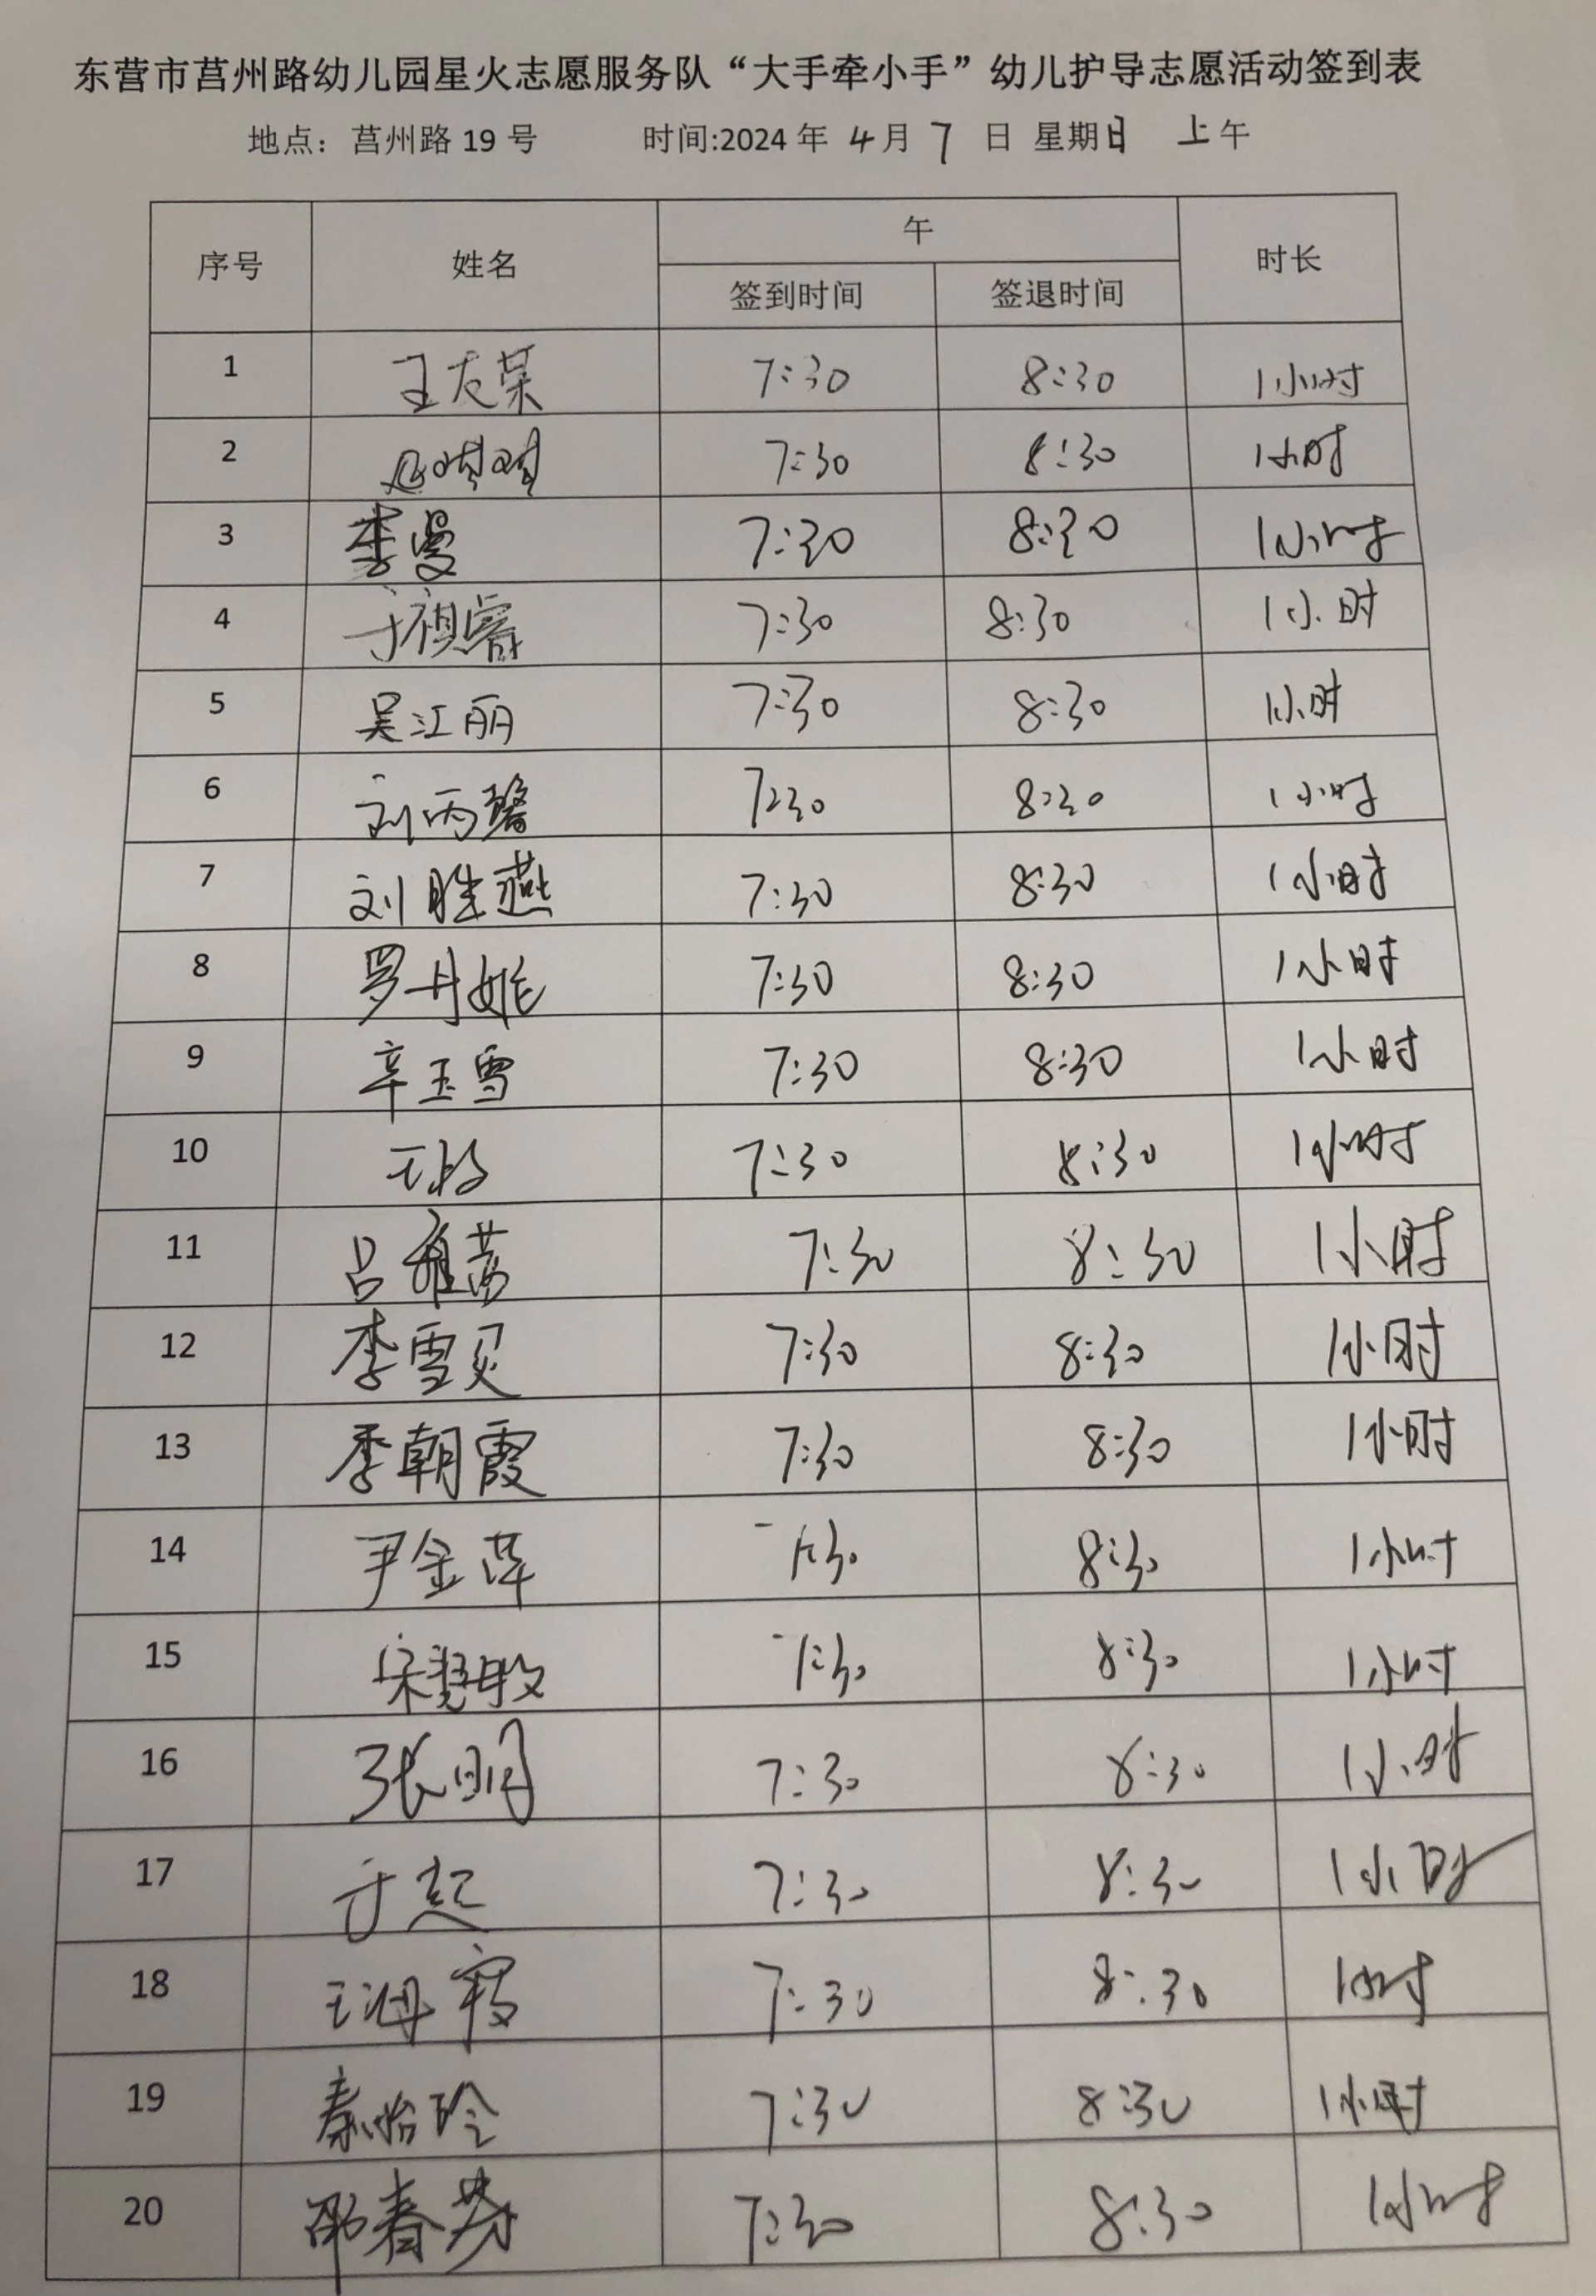 东营市莒州路幼儿园星火志愿服务队“大手牵小手”幼儿护导志愿活动签到表
地点：莒州路 19 号 时间:2024 年 4 月 7 日 星期日 上午
序号 姓名 午 时长
签到时间 签退时间
1 王友荣 7:30 8:30 1小时
2 7:30 8:30 1小时
3 李曼 7:30 8:30 1小时
4 于祖睿 7:30 8:30 1小时
5 吴江丽 7:30 8:30 1小时
6 刘丙馨 7:30 8:30 1小时
7 刘胜燕 7:30 8:30 1小时
8 罗丹妮 7:30 8:30 1小时
9 辛玉雪 7:30 8:30 1小时
10 王 7:30 8:30 1小时
11 吕雅茹 7:30 8:30 1小时
12 李雪 7:30 8:30 1小时
13 季朝霞 7:30 8:30 1小时
14 尹金萍 7:30 8:30 1小时
15 宋慧敏 7:30 8:30 1小时
16 张明 7:30 8:30 1小时
17 于超 7:30 8:30 1小时
18 王海霞 7:30 8:30 1小时
19 秦怡玲 7:30 8:30 1小时
20 邵春芬 7:30 8:30 1小时